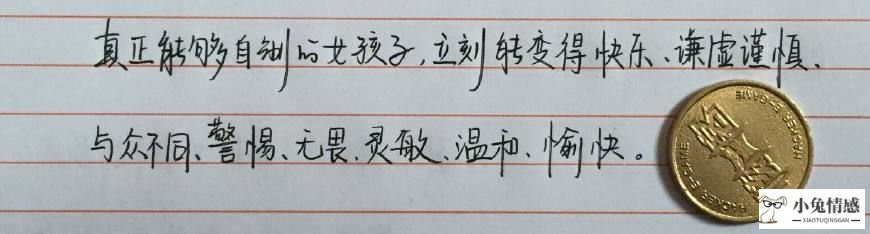 真正能够自制的女孩子,立刻能变得快乐、谦虚谨慎、
与众不同、警惕、无畏、灵敏、温和、愉快。
小兔情感
XIAOTUQINGGAN